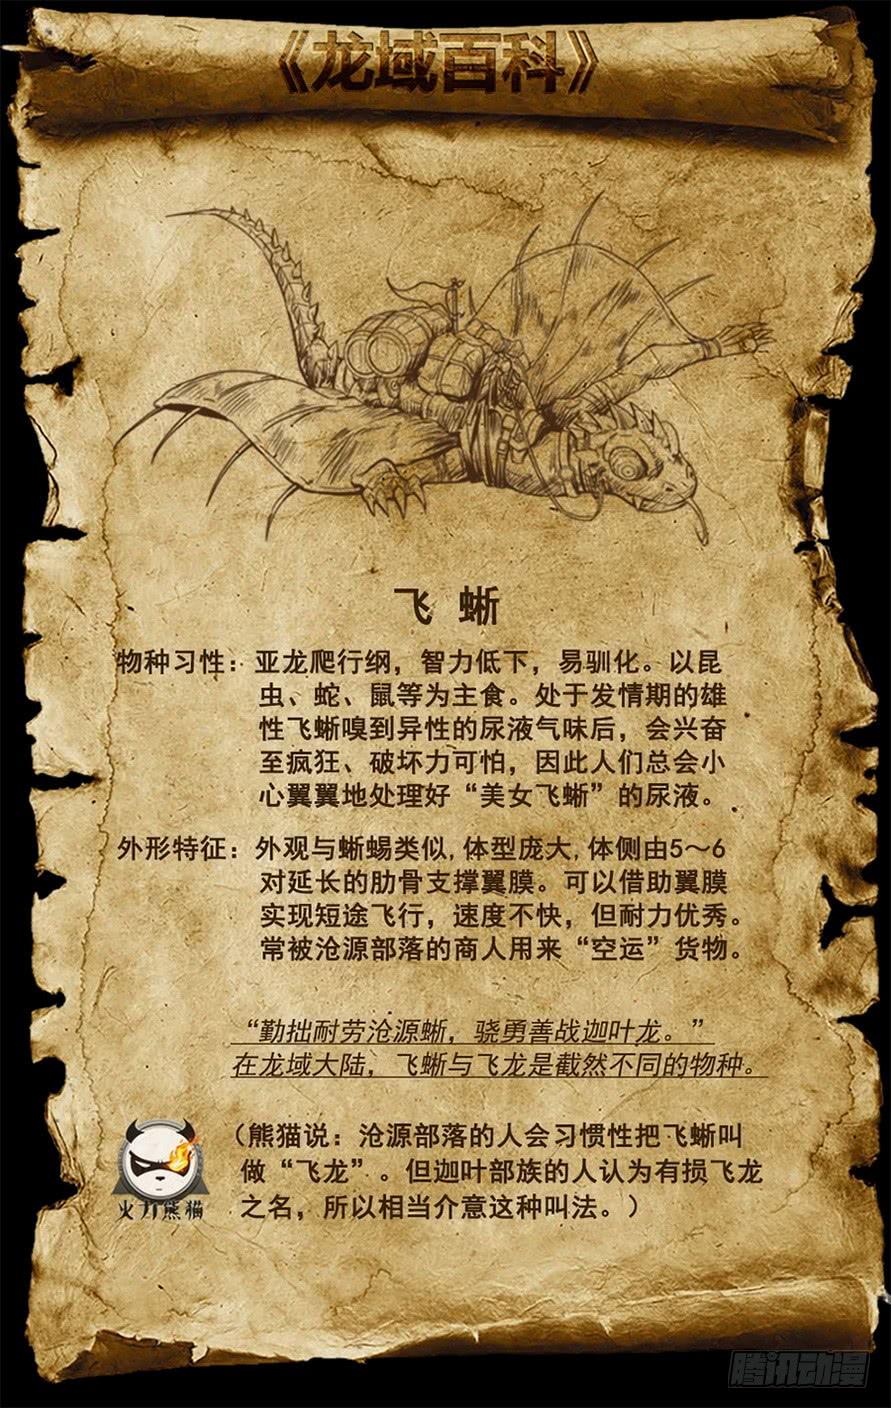 《龙域百科》
飞蜥
物种习性：亚龙爬行纲，智力低下，易驯化。以昆
虫、蛇、鼠等为主食。处于发情期的雄
性飞蜥嗅到异性的尿液气味后，会兴奋
至疯狂、破坏力可怕，因此人们总会小
心翼翼地处理好“美女飞蜥”的尿液。
外形特征：外观与蜥蜴类似,体型庞大,体侧由5～6
对延长的肋骨支撑翼膜。可以借助翼膜
实现短途飞行，速度不快，但耐力优秀。
常被沧源部落的商人用来“空运”货物。
“勤拙耐劳沧源蜥，骁勇善战迦叶龙。”
在龙域大陆，飞蜥与飞龙是截然不同的物种。
（熊猫说：沧源部落的人会习惯性把飞蜥叫
做“飞龙”。但迦叶部族的人认为有损飞龙
之名，所以相当介意这种叫法。）
火力熊猫
腾讯动漫